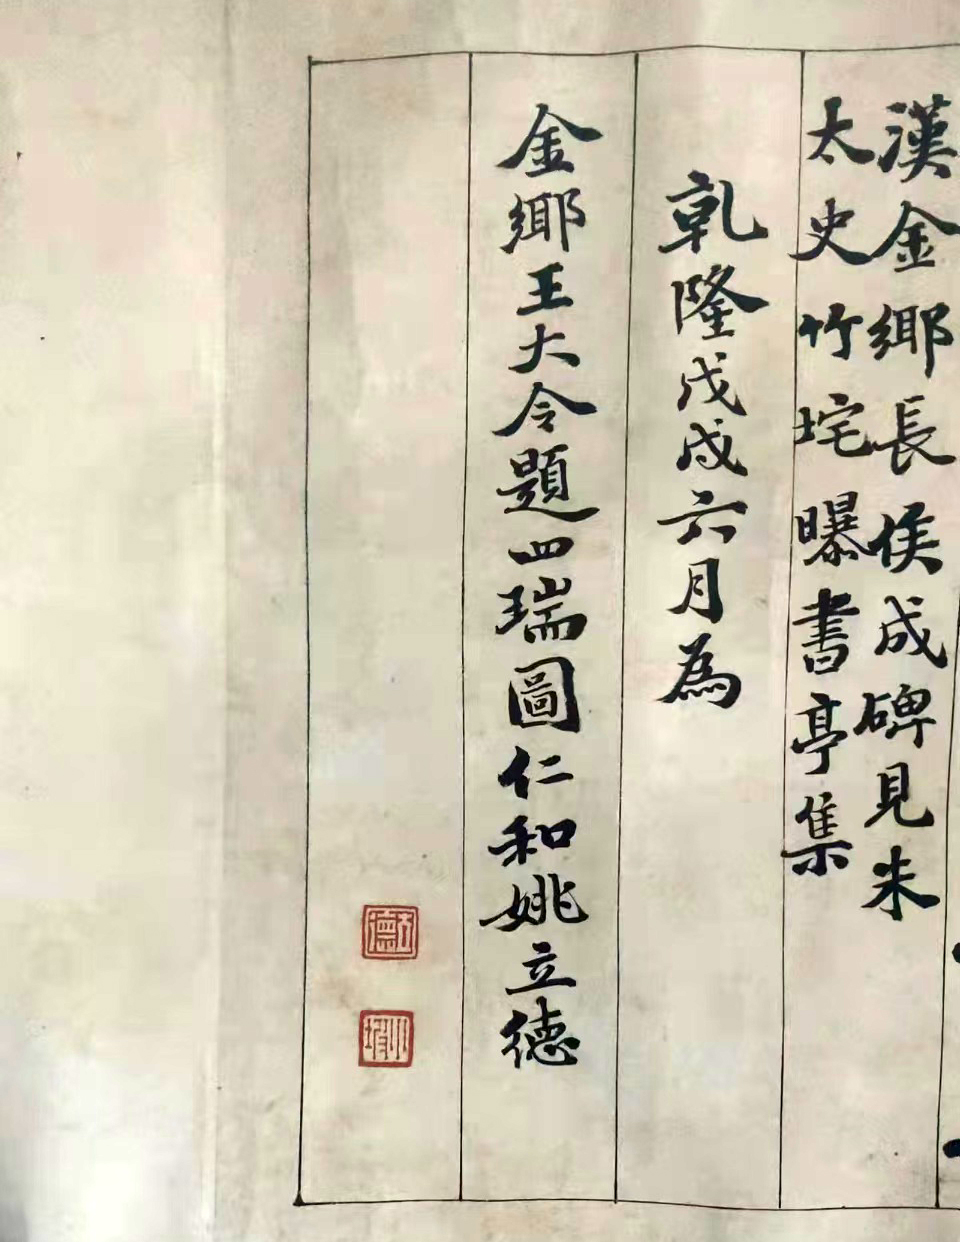 漢金鄉長侯成碑見朱
太史竹垞曝書亭集
乾隆戊戌六月為
金鄉王大令題四瑞圖仁和姚立德
立德
小坡